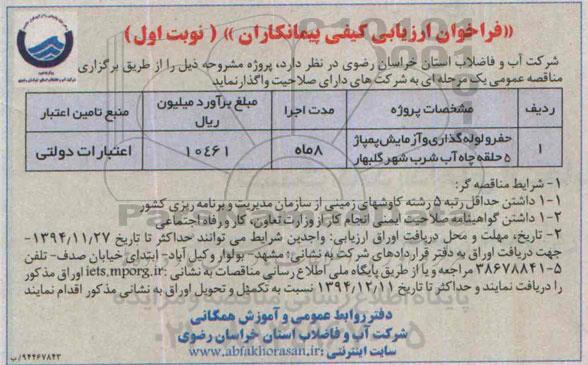 «فراخوان ارزیابی کیفی پیمانکاران» ( نوبت اول)
شرکت آب و فاضلاب استان خراسان رضوی در نظر دارد، پروژه مشروحه ذیل را از طریق برگزاری
مناقصه عمومی یک مرحله ای به شرکت های دارای صلاحیت واگذار نماید
ردیف مشخصات پروژه مدت اجرا مبلغ برآورد میلیون ریال منبع تامین اعتبار
۱ حفر و لوله گذاری و آزمایش پمپاژ ۵ حلقه چاه آب شرب شهر گلبهار ۸ ماه ۱۰۴۶۱ اعتبارات دولتی
۱- شرایط مناقصه گر:
۱-۱ داشتن حداقل رتبه ۵ رشته کاوشهای زمینی از سازمان مدیریت و برنامه ریزی کشور
۱-۲ داشتن گواهینامه صلاحیت ایمنی انجام کار از وزارت تعاون، کار و رفاه اجتماعی
۲- تاریخ، مهلت و محل دریافت اوراق ارزیابی: واجدین شرایط می توانند حداکثر تا تاریخ ۱۳۹۴،۱۱،۲۷-
جهت دریافت اوراق به دفتر قراردادهای شرکت به نشانی: مشهد- بولوار وکیل آباد- ابتدای خیابان صدف- تلفن
۵-۳۸۶۷۸۸۴۱ مراجعه و یا از طریق پایگاه ملی اطلاع رسانی مناقصات به نشانی: iets.mporg.ir اوراق مذکور
را دریافت نمایند و حداکثر تا تاریخ ۱۳۹۴،۱۲،۱۱ نسبت به تکمیل و تحویل اوراق به نشانی مذکور اقدام نمایند
دفتر روابط عمومی و آموزش همگانی
شرکت آب و فاضلاب استان خراسان رضوی
سایت اینترنتی: www.abfakhorasan.ir
۹۴۴۶۷۸۴۳/ب